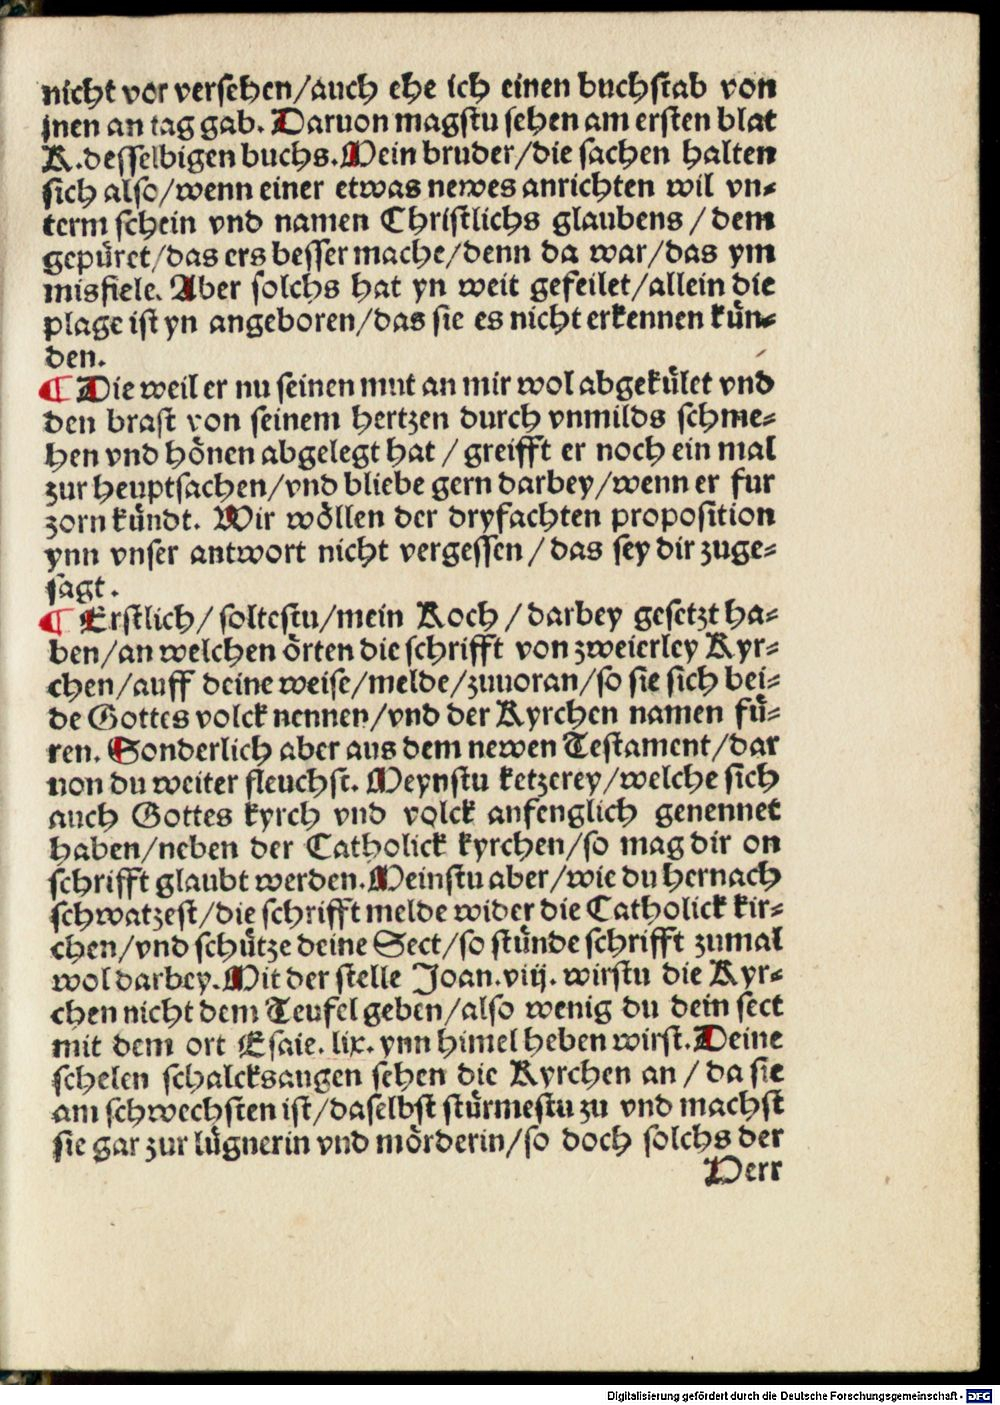 nicht vor versehen/auch ehe ich einen buchstab von
jnen an tag gab. Daruon magstu sehen am ersten blat
K.desselbigen buchs.Mein bruder/die sachen halten
sich also/wenn einer etwas newes anrichten wil vn-
term schein vnd namen Christlichs glaubens/dem
gepüret/das ers besser mache/denn da war/das ym
misfiele. Aber solchs hat yn weit gefeilet/allein die
plage ist yn angeboren/das sie es nicht erkennen kün-
den.
¶ Die weil er nu seinen mut an mir wol abgekület vnd
den brast von seinem hertzen durch vnmilds schme-
hen vnd hönen abgelegt hat/greifft er noch ein mal
zur heuptsachen/vnd bliebe gern darbey/wenn er fur
zorn kündt. Wir wöllen der dryfachten proposition
ynn vnser antwort nicht vergessen/das sey dir zuge-
sagt.
¶ Erstlich/soltestu/mein Koch/darbey gesetzt ha-
ben/an welchen örten die schrifft von zweierley Kyr-
chen/auff deine weise/melde/zuuoran/so sie sich bei-
de Gottes volck nennen/vnd der Kyrchen namen fü-
ren. Sonderlich aber aus dem newen Testament/dar
uon du weiter fleuchst. Meynstu ketzerey/welche sich
auch Gottes kyrch vnd volck anfenglich genennet
haben/neben der Catholick kyrchen/so mag dir on
schrifft glaubt werden.Meinstu aber/wie du hernach
schwatzest/die schrifft melde wider die Catholick kir-
chen/vnd schütze deine Sect/so stünde schrifft zumal
wol darbey.Mit der stelle Joan.viij. wirstu die Kyr-
chen nicht dem Teufel geben/also wenig du dein sect
mit dem ort Esaie. lix. ynn himel heben wirst.Deine
schelen schalcksaugen sehen die Kyrchen an/da sie
am schwechsten ist/daselbst stürmestu zu vnd machst
sie gar zur lügnerin vnd mörderin/so doch solchs der
Herr
Digitalisierung gefördert durch die Deutsche Forschungsgemeinschaft - DFG